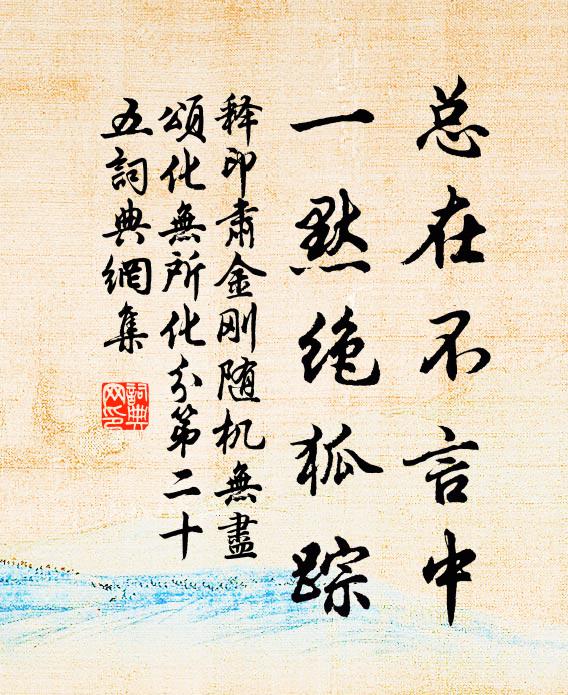 总在不言中
一默绝狐踪
释印肃金刚随机無盡
頌化無所化分第二十
五詞典網集
詞典
网印